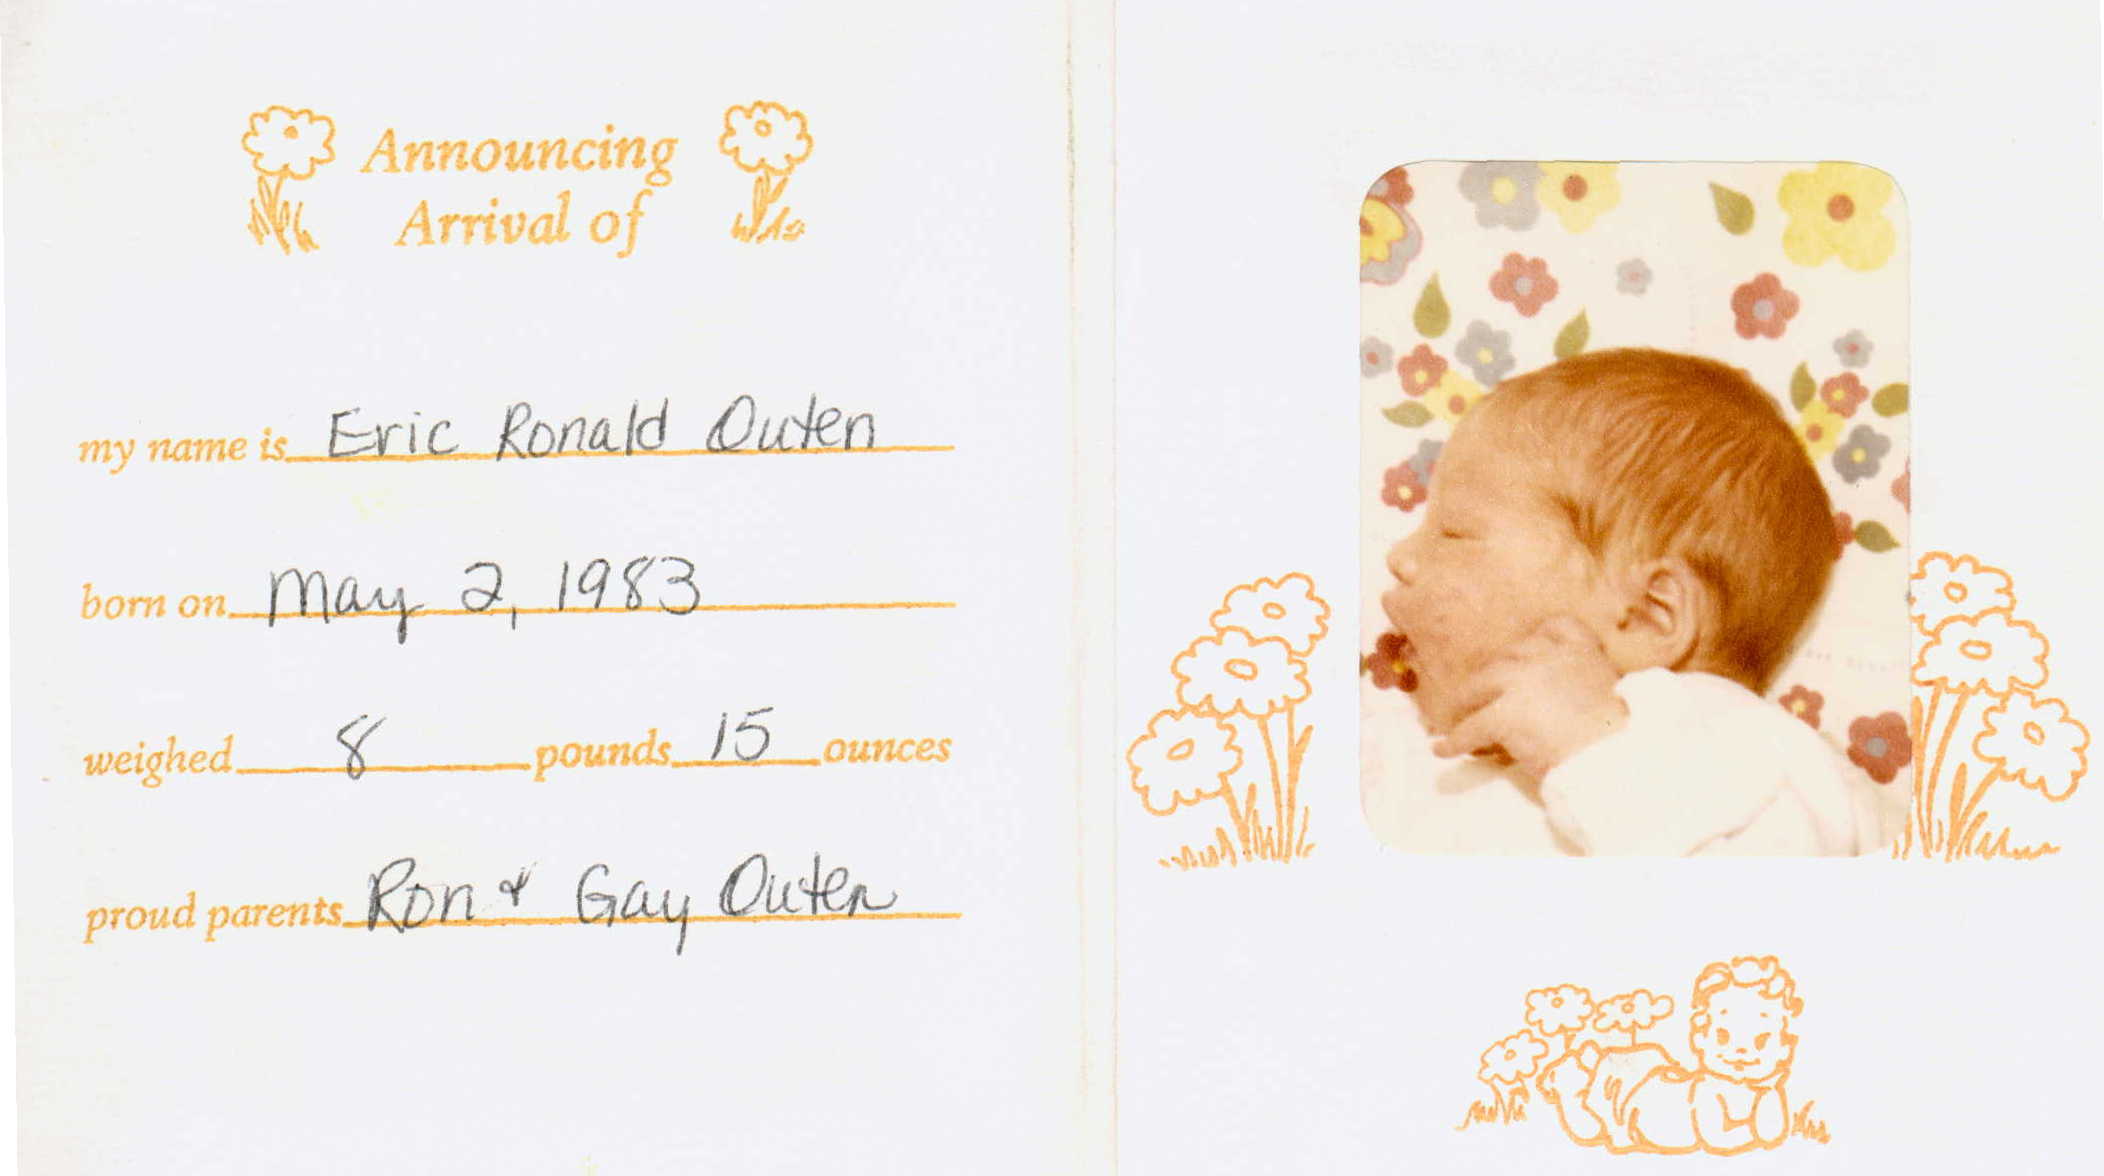 Announcing
Arrival of
my name is Eric Ronald Outen
born on May 2, 1983
weighed 8 pounds 15 ounces
proud parents Ron & Gay Outen